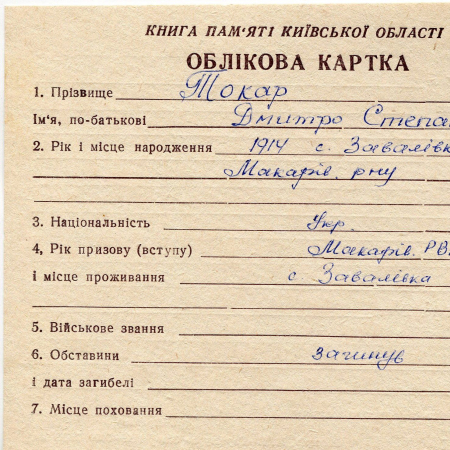 КНИГА ПАМ'ЯТІ КИЇВСЬКОЇ ОБЛАСТІ
ОБЛІКОВА КАРТКА
1. Прізвище Токар
Ім'я, по-батькові Дмитро Степа
2. Рік і місце народження 1914 с. Завалівк
Макарів. р-ну
3. Національність Укр.
4, Рік призову (вступу) Макарів. РВ
і місце проживання с. Завалівка
5. Військове звання
6. Обставини загинув
і дата загибелі
7. Місце поховання